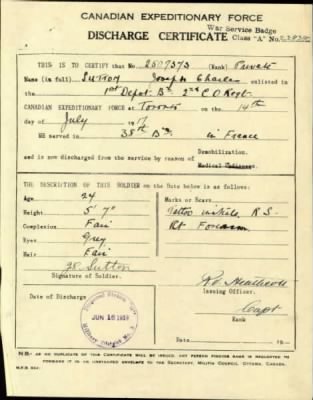 CANADIAN EXPEDITIONARY FORCE
War Service Badge
DISCHARGE CERTIFICATE Class "A" No.
THIS IS TO CERTIFY that No. 2507373 (Rank) Private
Name (in full) SUTTON Joseph Charles enlisted in
the 1st Depot Bn 2nd C O Regt
CANADIAN EXPEDITIONARY FORCE at Toronto on the 14th
day of July 19
HE served in 38th Bn in France
and is now discharged from the service by reason of Demobilization.
Medical Unfitness.
THE DESCRIPTION OF THIS SOLDIER on the Date below is as follows:
Age 24
Height 5' 7"
Complexion Fair
Eyes Grey
Hair Fair
Marks or Scars
Tattoo initials, R.S.
Rt Forearm
JC Sutton
Signature of Soldier.
Issuing Officer.
Date of Discharge
JUN 16 1919
Capt
Rank
19
NB- AS NO DUPLICATE OF THIS CERTIFICATE WILL BE ISSUED, ANY PERSON FINDING SAME IS REQUESTED TO
FORWARD IT IN AN UNSTAMPED ENVELOPE TO THE SECRETARY, MILITIA COUNCIL, OTTAWA, CANADA.